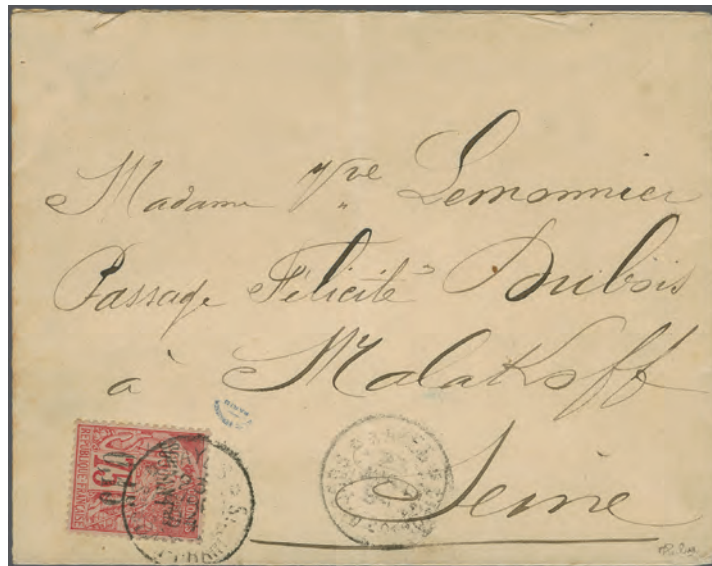 Madame Vve Lemonnier
Passage Félicité Dubois
à Malakoff
Seine
RÉPUBLIQUE FRANÇAISE
75